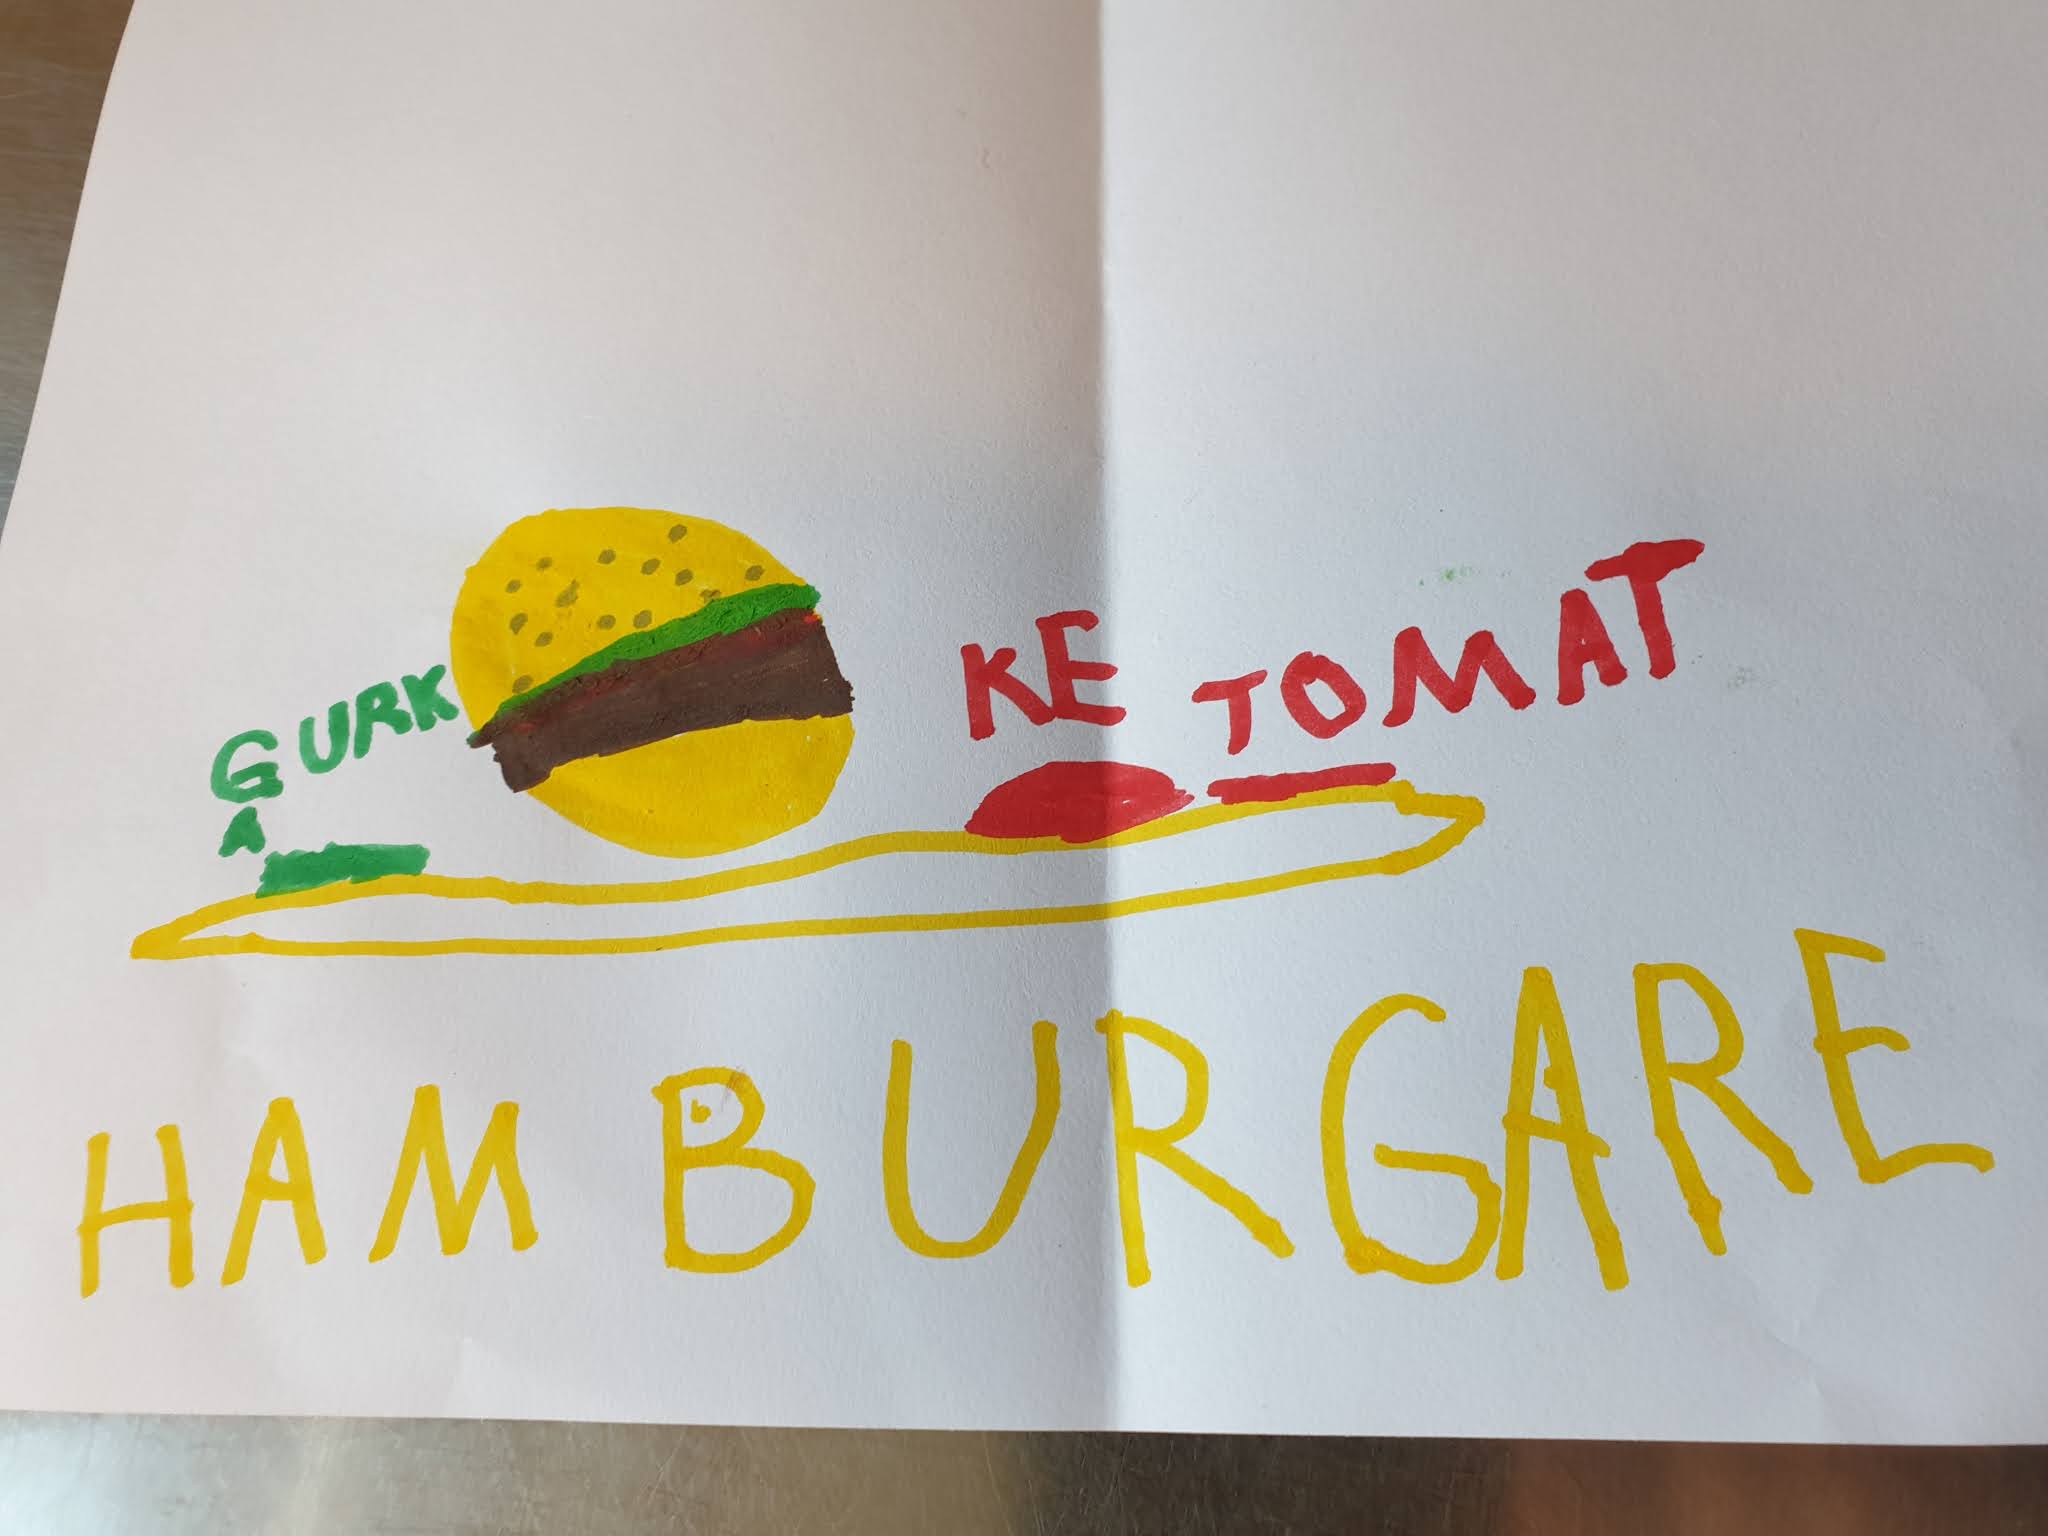 GURK
A
KE
TOMAT
HAMBURGARE